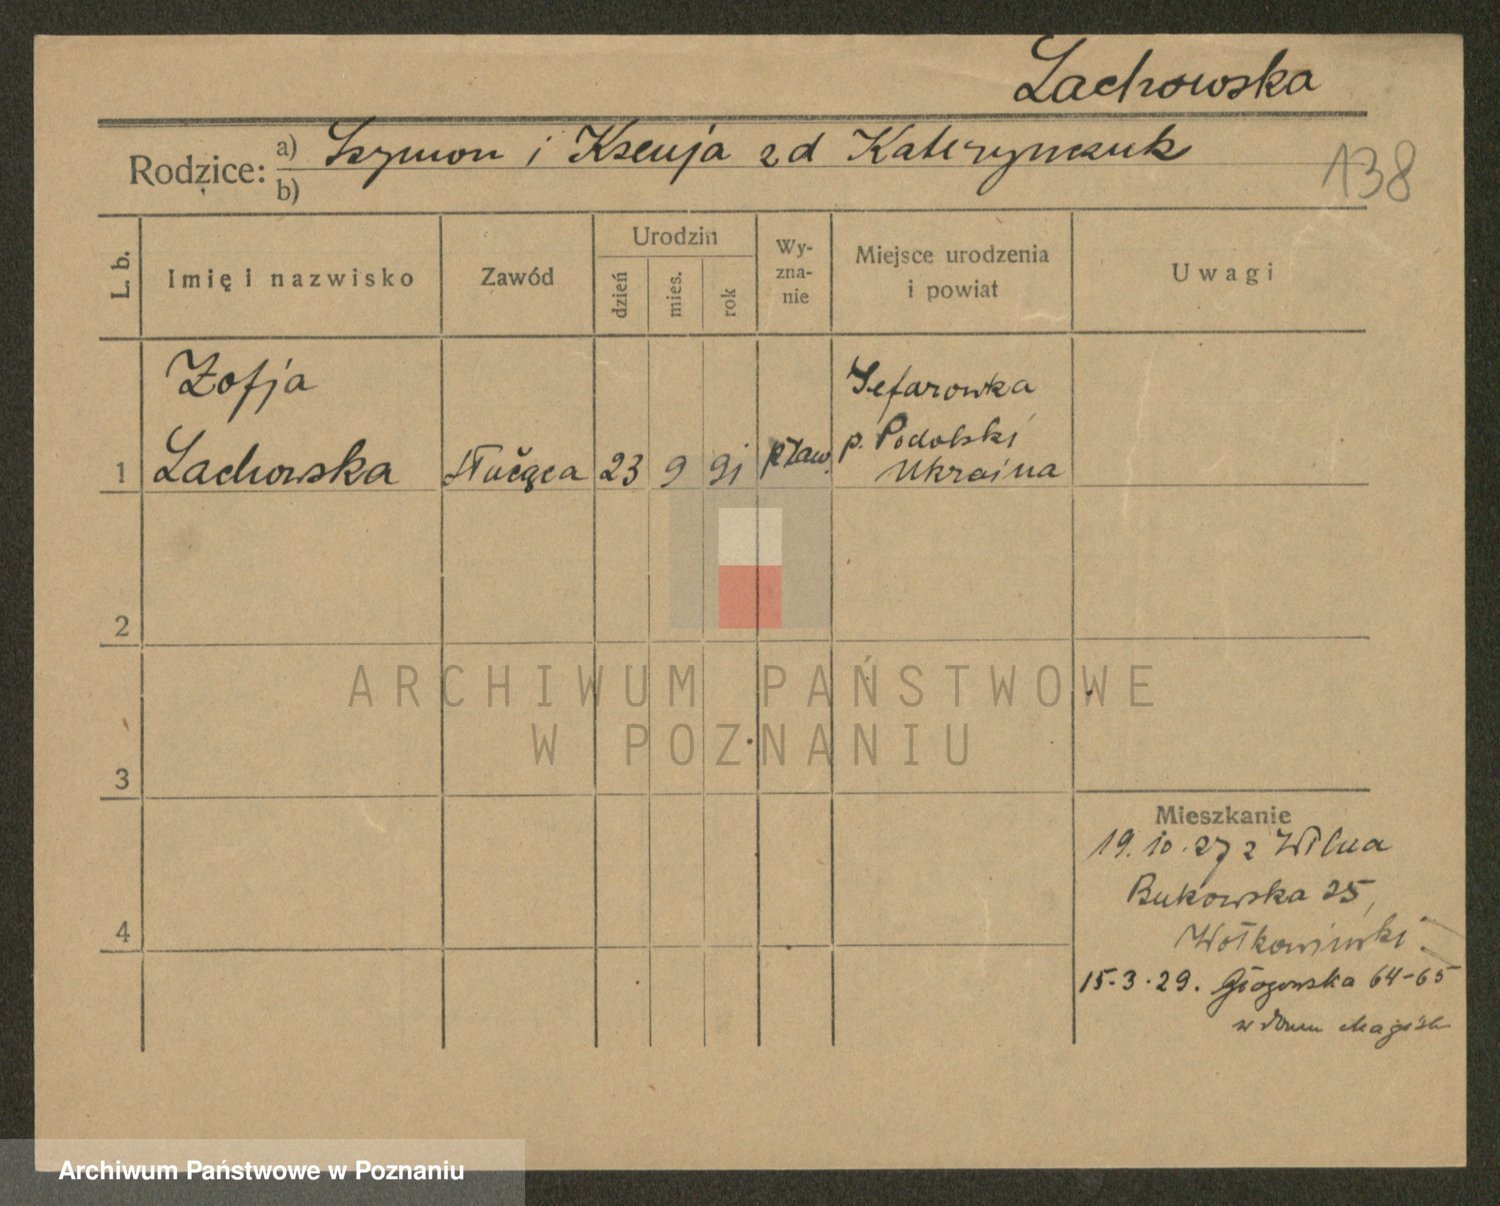 Lachowska
Rodzice: a) Szymon i Ksenja zd Katerynczuk
b)
138
L. b.
Imię i nazwisko
Zawód
Urodzin
dzień
mies.
rok
Wy-
zna-
nie
Miejsce urodzenia
i powiat
Uwagi
1
Zofja
Lachowska
23
9
91
praw.
p. Podolski
Ukraina
2
3
4
ARCHIWUM PAŃSTWOWE
W POZNANIU
Mieszkanie
19.10.27 z Wilna
Bukowska 25,
15.3.29. Głogowska 64-65
w domu
Archiwum Państwowe w Poznaniu